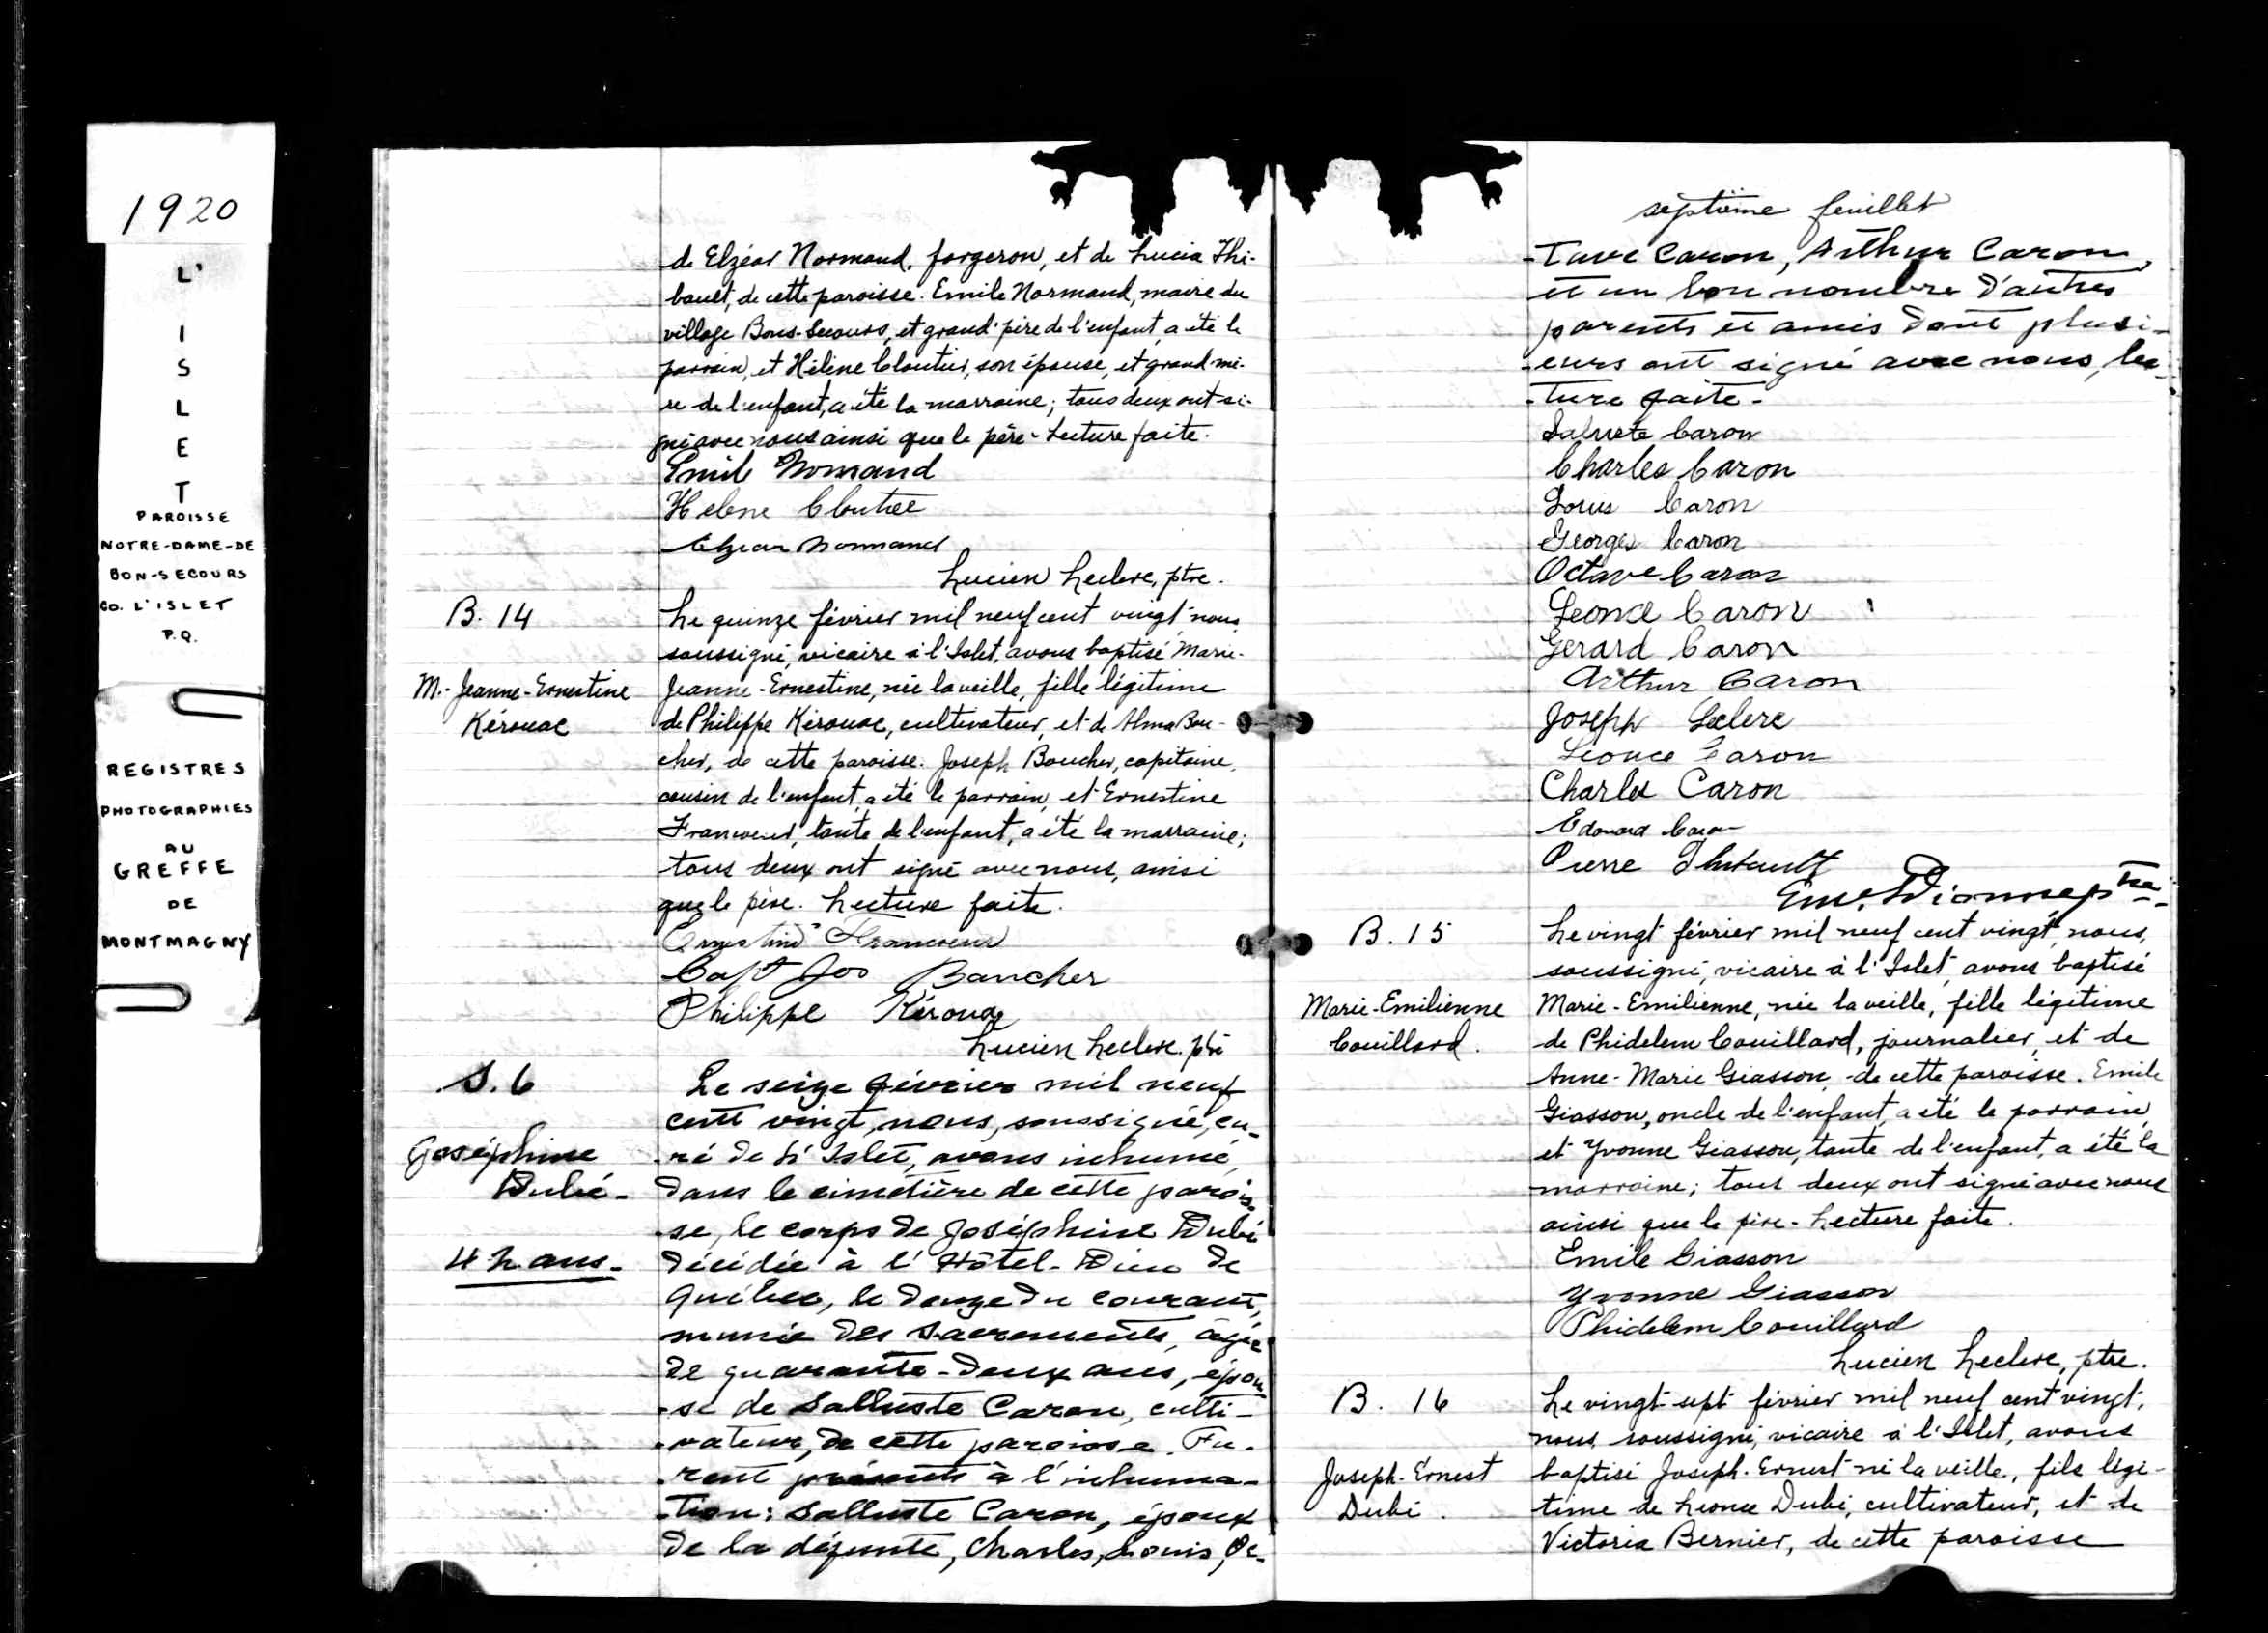 1920
L'
I
S
L
E
T
PAROISSE
NOTRE-DAME-DE
BON-SECOURS
CO. L'ISLET
P.Q.
REGISTRES
PHOTOGRAPHIES
AU
GREFFE
DE
MONTMAGNY
de Elzéar Normand, forgeron, et de Lucia Thi-
bault, de cette paroisse. Emile Normand, maire du
village Bons-Secours, et grand'père de l'enfant, a été le
parrain, et Hélène Cloutier, son épouse, et grand'mè-
re de l'enfant, a été la marraine; tous deux ont si-
gné avec nous ainsi que le père - Lecture faite.
Emile Normand
Helene Cloutier
Elzear Normand
Lucien Leclerc, ptre.
B. 14
M.-Jeanne-Ernestine
Kérouac
Le quinze février mil neuf cent vingt, nous,
soussigné, vicaire à l'Islet, avons baptisé Marie-
Jeanne-Ernestine, née la veille, fille légitime
de Philippe Kérouac, cultivateur, et de Alma Bou-
cher, de cette paroisse. Joseph Boucher, capitaine,
cousin de l'enfant, a été le parrain, et Ernestine
Francoeur, tante de l'enfant, a été la marraine;
tous deux ont signé avec nous, ainsi
que le père. Lecture faite.
Ernestine Francoeur
Capt Jos Boucher
Philippe Kérouac
Lucien Leclerc. ptre
S. 6
Joséphine
Dubé -
42 ans -
Le seize février mil neuf
cent vingt, nous, soussigné, cu-
-ré de L'Islet, avons inhumé,
dans le cimetière de cette parois-
-se, le corps de Joséphine Dubé
décédée à l'Hôtel-Dieu de
Québec, le douze du courant,
munie des sacrements, âgée
de quarante-deux ans, épou-
-se de Salluste Caron, culti-
-vateur, de cette paroisse. Fu-
-rent présents à l'inhuma-
-tion: Salluste Caron, époux
de la défunte, Charles, Louis, Oc-
septième feuillet
-tave Caron, Arthur Caron,
et un bon nombre d'autres
parents et amis dont plusi-
-eurs ont signé avec nous, lec-
-ture faite -
Saluste Caron
Charles Caron
Louis Caron
Georges Caron
Octave Caron
Leonce Caron
Gerard Caron
Arthur Caron
Joseph Leclerc
Leonce Caron
Charles Caron
Edouard Caron
Pierre Thibault
Em. Dionne ptre -
B. 15
Marie-Emilienne
Couillard.
Le vingt février mil neuf cent vingt, nous,
soussigné, vicaire à l'Islet, avons baptisé
Marie-Emilienne, née la veille, fille légitime
de Phidelem Couillard, journalier, et de
Anne-Marie Giasson, de cette paroisse. Emile
Giasson, oncle de l'enfant, a été le parrain,
et Yvonne Giasson, tante de l'enfant, a été la
marraine; tous deux ont signé avec nous
ainsi que le père - Lecture faite.
Emile Giasson
Yvonne Giasson
Phidelem Couillard
Lucien Leclerc, ptre.
B. 16
Joseph-Ernest
Dubé.
Le vingt-sept février mil neuf cent vingt,
nous, soussigné, vicaire à l'Islet, avons
baptisé Joseph-Ernest né la veille, fils légi-
time de Leonce Dubé, cultivateur, et de
Victoria Bernier, de cette paroisse